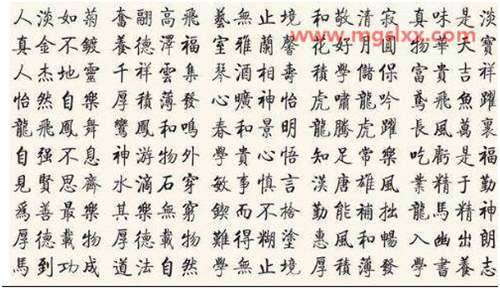 人淡如菊 奮翮高飛 藝無止境 和敬清寂 真味是淡
www.mgslxx.com
真金不鍍 養德澤福 室雅蘭馨 花好月圓 物華天寶
人杰地靈 千祥雲集 琴酒相壽 積學儲保 富貴吉祥
怡然自樂 厚積薄發 心曠神怡 虎嘯龍吟 鳶飛魚躍
龍飛鳳舞 鸞鳳和鳴 春和景明 龍騰虎躍 長風萬裏
自强不息 神游物外 學貴心悟 知足常樂 吃虧是福
見賢思齊 水滴石穿 敏事慎言 漢唐雄風 業精于勤
爲善最樂 其樂無窮 鍥而不捨 勤能補拙 龍馬精神
厚德載物 難得糊塗 惠風和暢 入幽出朗
馬到功成 道法自然 學無止境 厚積薄發 學書養志